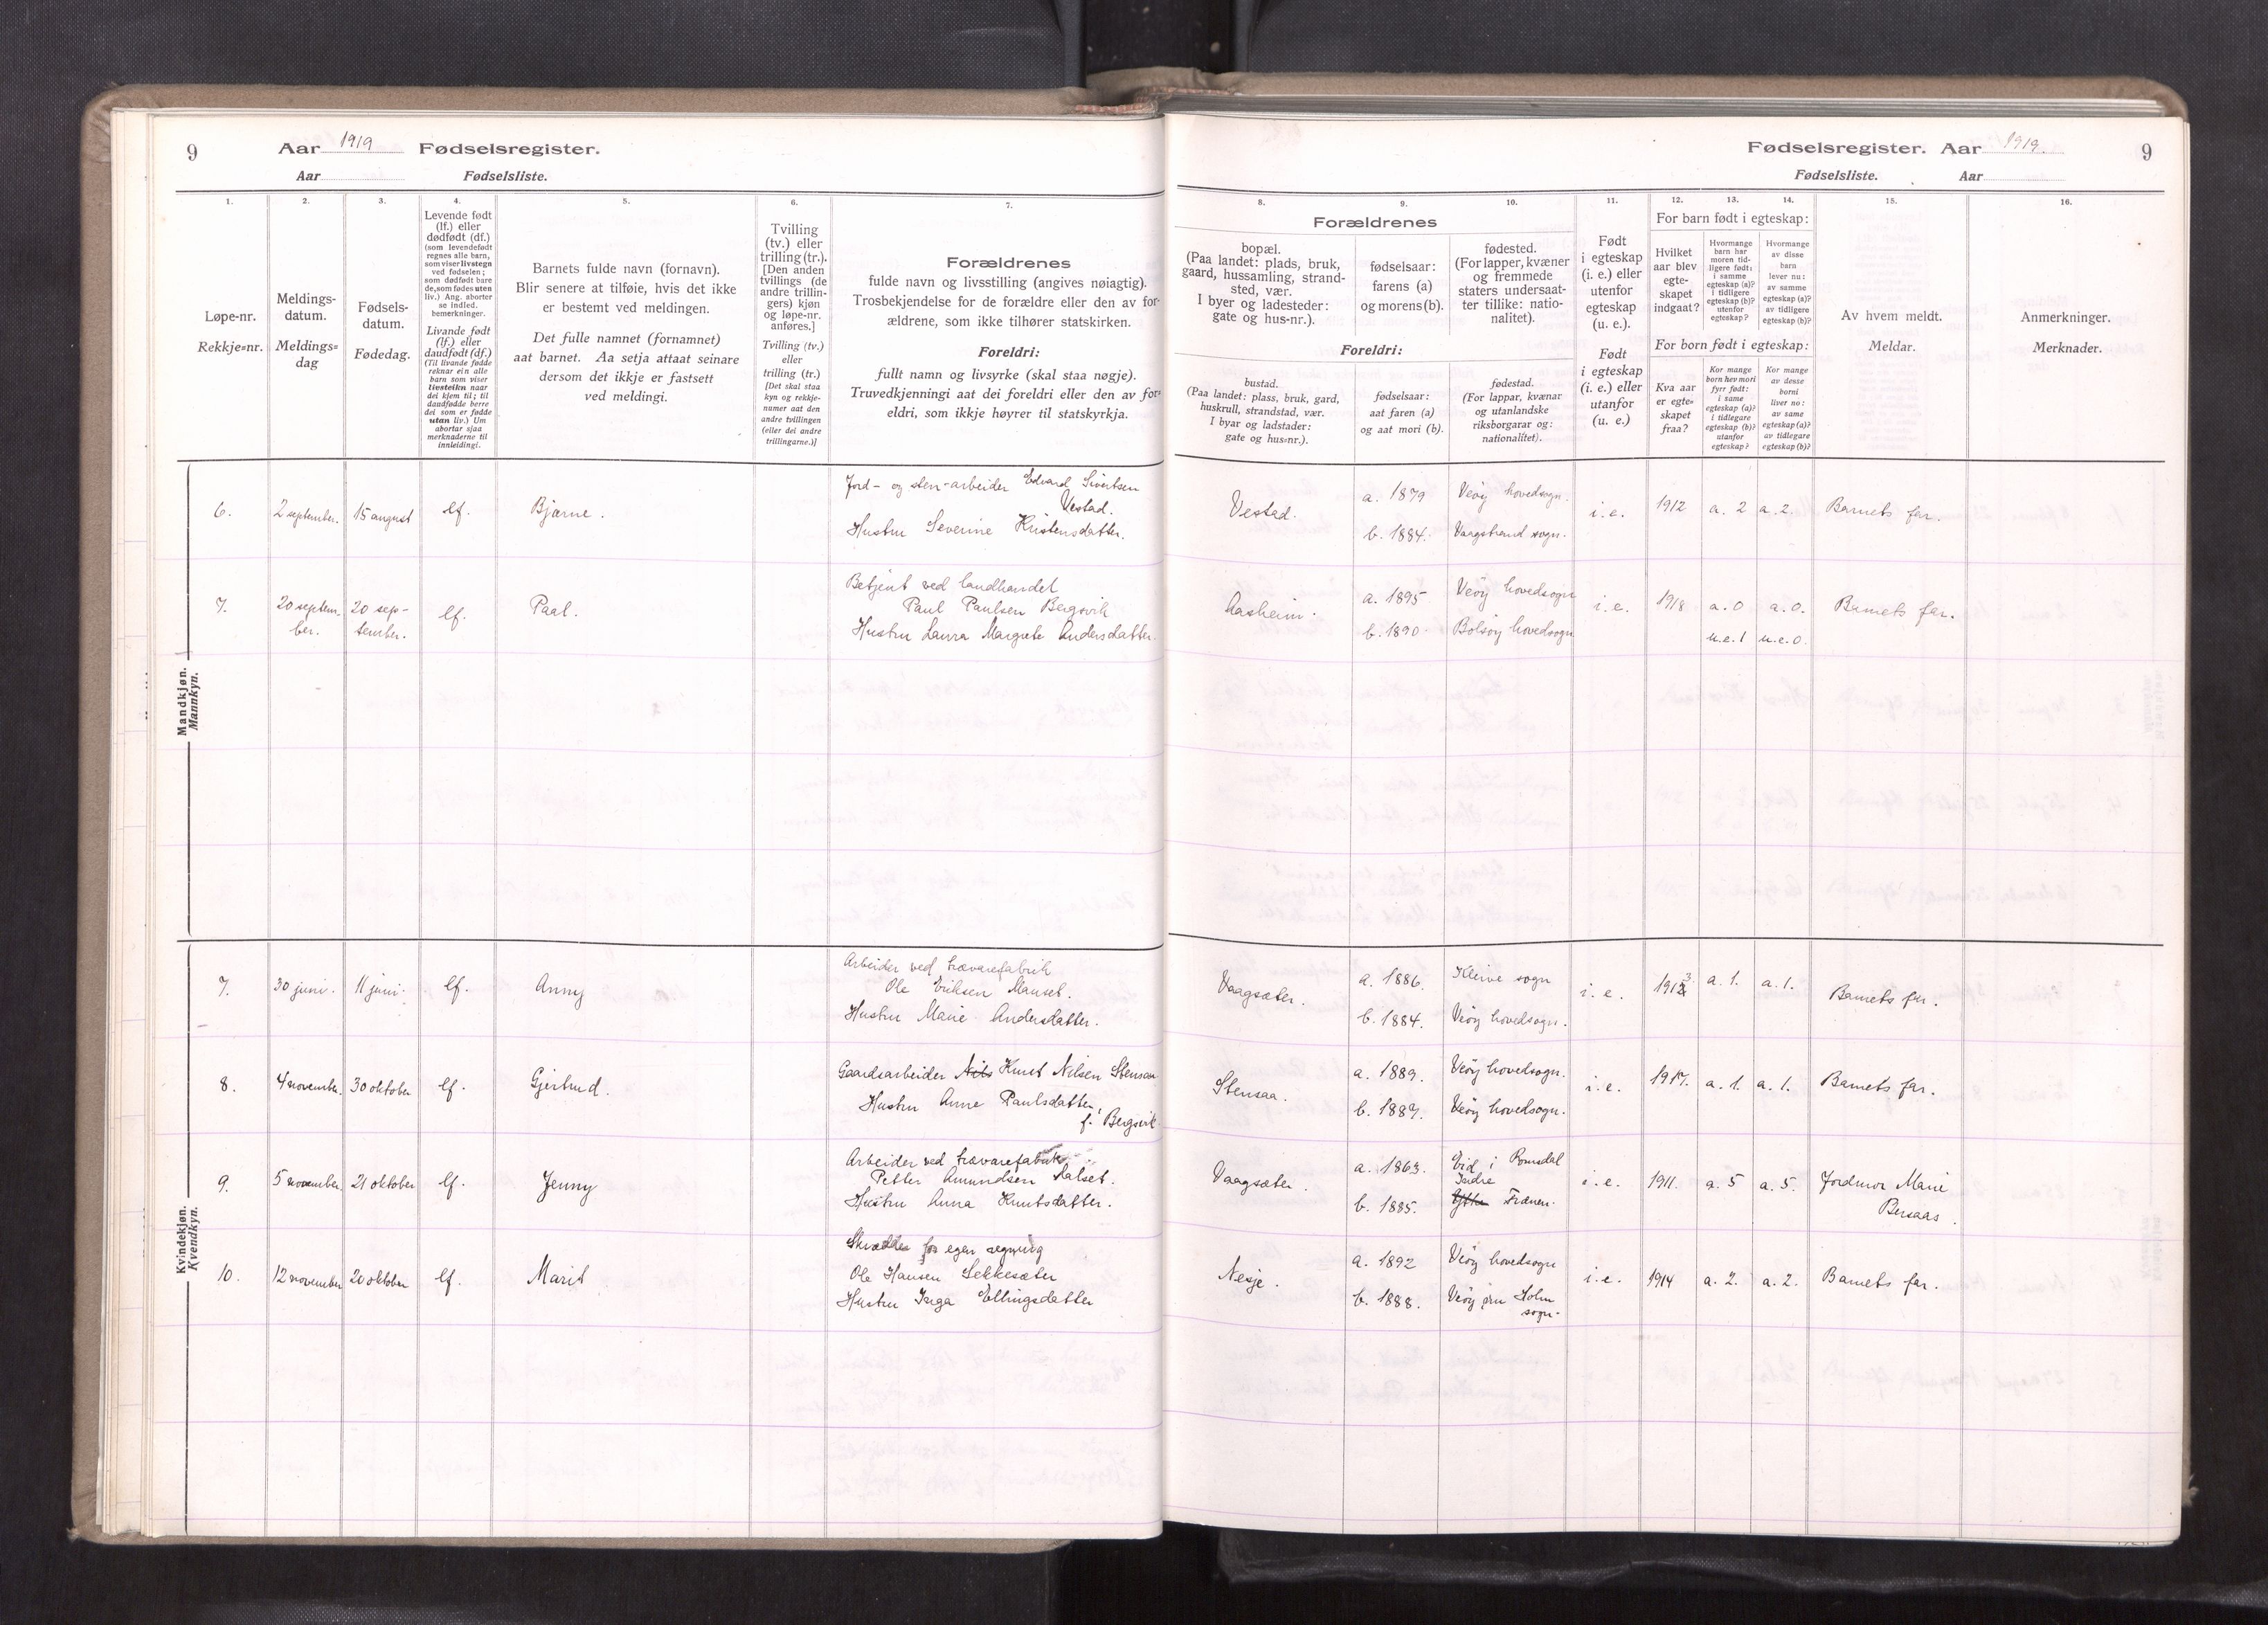 9
Aar 1919 Fødselsregister.
Aar Fødselsliste.
1.
2.
3.
4.
5.
6.
7.
Løpe-nr.
Rekkje=nr.
Meldings-
datum.
Meldings=
dag
Fødsels-
datum.
Fødedag.
Levende født
(lf.) eller
dødfødt (df.)
(som levendefødt
regnes alle barn,
som viser livstegn
ved fødselen;
som dødfødt bare
de, som fødes uten
liv.) Ang. aborter
se indled.
bemerkninger.
Livande født
(lf.) eller
daudfødt (df.)
(Til livande fødde
reknar ein alle
barn som viser
livsteikn naar
dei kjem til; til
daudfødde berre
dei som er fødde
utan liv.) Um
abortar sjaa
merknaderne til
innleidingi.
Barnets fulde navn (fornavn).
Blir senere at tilføie, hvis det ikke
er bestemt ved meldingen.
Det fulle namnet (fornamnet)
aat barnet. Aa setja attaat seinare
dersom det ikkje er fastsett
ved meldingi.
Tvilling
(tv.) eller
trilling (tr.).
[Den anden
tvillings (de
andre trillin-
gers) kjøn
og løpe-nr.
anføres.]
Tvilling (tv.)
eller
trilling (tr.)
[Det skal staa
kyn og rekkje-
numer aat den
andre tvillingen
(eller dei andre
trillingarne.)]
Forældrenes
fulde navn og livsstilling (angives nøiagtig).
Trosbekjendelse for de forældre eller den av for-
ældrene, som ikke tilhører statskirken.
Foreldri:
fullt namn og livsyrke (skal staa nøgje).
Truvedkjenningi aat dei foreldri eller den av for=
eldri, som ikkje høyrer til statskyrkja.
Mandkjøn.
Mannkyn.
6. 2 september. 15 august lf. Bjarne.
Jord- og sten-arbeider Edvard Sivertsen
Vestad.
Hustru Severine Kristensdatter.
7. 20 septem-
ber. 20 sep-
tember. lf. Paal.
Betjent ved landhandel
Paul Paulsen Bergsvik
Hustru Laura Margrete Andersdatter.
Kvindekjøn.
Kvendkyn.
7. 30 juni. 11 juni. lf. Anny
Arbeider ved trævarefabrik
Ole Eriksen Mauset.
Hustru Marie Andersdatter.
8. 4 november. 30 oktober lf. Gjertrud.
Gaardsarbeider Nils Knut Nilsen Stensaa
Hustru Anne Paulsdatter,
f. Bergsvik
9. 5 november. 21 oktober lf. Jenny
Arbeider ved trævarefabrik
Petter Amundsen Aalset.
Hustru Anna Knutsdatter.
10. 12 november 20 oktober lf. Marit
Skrædder for egen regning
Ole Hansen Sekkesæter
Hustru Inga Ellingsdatter
Fødselsregister. Aar 1919.
9
Fødselsliste. Aar
8.
9.
10.
11.
12.
13.
14.
15.
16.
Forældrenes
bopæl.
(Paa landet: plads, bruk,
gaard, hussamling, strand-
sted, vær.
I byer og ladesteder:
gate og hus-nr.).
fødselsaar:
farens (a)
og morens (b).
fødested.
(For lapper, kvæner
og fremmede
staters undersaat-
ter tillike: natio-
nalitet).
Foreldri:
bustad.
(Paa landet: plass, bruk, gard,
huskrull, strandstad, vær.
I byar og ladstader:
gate og hus=nr.).
fødselsaar:
aat faren (a)
og aat mori (b).
fødestad.
(For lappar, kvænar
og utanlandske
riksborgarar og:
nationalitet).
Født
i egteskap
(i. e.) eller
utenfor
egteskap
(u. e.).
Født
i egteskap
(i. e.) eller
utanfor
(u. e.)
For barn født i egteskap:
Hvilket
aar blev
egte-
skapet
indgaat?
Hvormange
barn har
moren tid-
ligere født:
i samme
egteskap (a)?
i tidligere
egteskap (b)?
utenfor
egteskap?
Hvormange
av disse
barn
lever nu:
av samme
egteskap (a)?
av tidligere
egteskap (b)?
For born født i egteskap:
Kva aar
er egte=
skapet
fraa?
Kor mange
born hev mori
fyrr født:
i same
egteskap (a)?
i tidlegare
egteskap (b)?
utanfor
egteskap?
Kor mange
av desse
borni
liver no:
av same
egteskap (a)?
av tidlegare
egteskap (b)?
Av hvem meldt.
Meldar.
Anmerkninger.
Merknader.
Vestad. a. 1879 Veøy hovedsogn. i.e. 1912 a. 2 a. 2. Barnets far.
b. 1884. Vaagstrand sogn.
Aasheim. a. 1895 Veøy hovedsogn i.e. 1918 a. 0 a. 0. Barnets far.
b. 1890 Bolsøy hovedsogn u.e. 1 u.e. 0.
Vaagsæter. a. 1886. Kleive sogn i.e. 1913 a. 1. a. 1. Barnets far.
b. 1884. Veøy hovedsogn.
Stensaa. a. 1889. Veøy hovedsogn. i.e. 1917. a. 1. a. 1. Barnets far.
b. 1887. Veøy hovedsogn.
Vaagsæter. a. 1863. Eid i Romsdal i.e. 1911. a. 5 a. 5. Jordmor Marie
Indre
b. 1885. Ytre Frænen. Bersaas.
Nesje. a. 1892 Veøy hovedsogn i.e. 1914 a. 2. a. 2. Barnets far.
b. 1888. Veøy pru Holm
sogn.